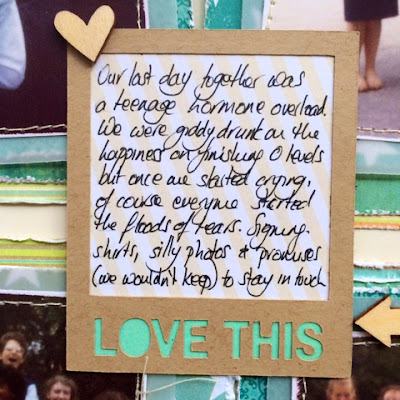 Our last day together was
a teenage hormone overload.
We were giddy drunk on the
happiness on finishing O levels
but once one started crying,
of course everyone started
the floods of tears. Signing
shirts, silly photos & promises
(we wouldn't keep) to stay in touch
LOVE THIS